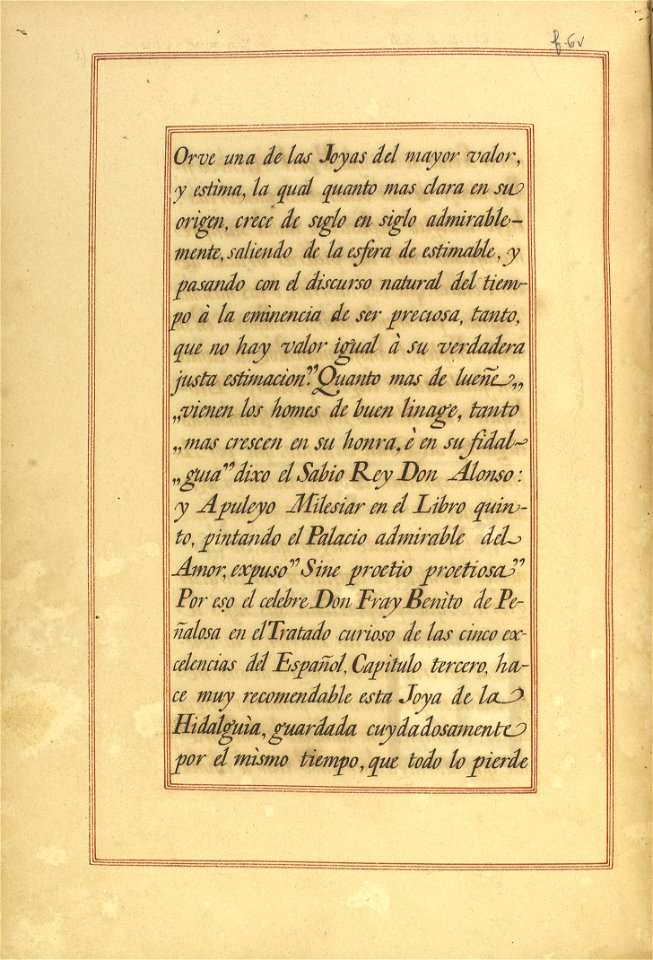 f. 6v
Orve una de las Joyas del mayor valor,
y estima, la qual quanto mas clara en su
origen, crece de siglo en siglo admirable-
mente, saliendo de la esfera de estimable, y
pasando con el discurso natural del tiem-
po à la eminencia de ser preciosa, tanto,
que no hay valor igual à su verdadera
justa estimacion." Quanto mas de lueñe „
„ vienen los homes de buen linage, tanto
„ mas crescen en su honra, è en su fidal-
„ guia" dixo el Sabio Rey Don Alonso:
y Apuleyo Milesiar en el Libro quin-
to, pintando el Palacio admirable del
Amor, expuso" Sine proetio proetiosa"
Por eso el celebre Don Fray Benito de Pe-
ñalosa en el Tratado curioso de las cinco ex-
celencias del Español, Capitulo tercero, ha-
ce muy recomendable esta Joya de la
Hidalguia, guardada cuydadosamente
por el mismo tiempo, que todo lo pierde